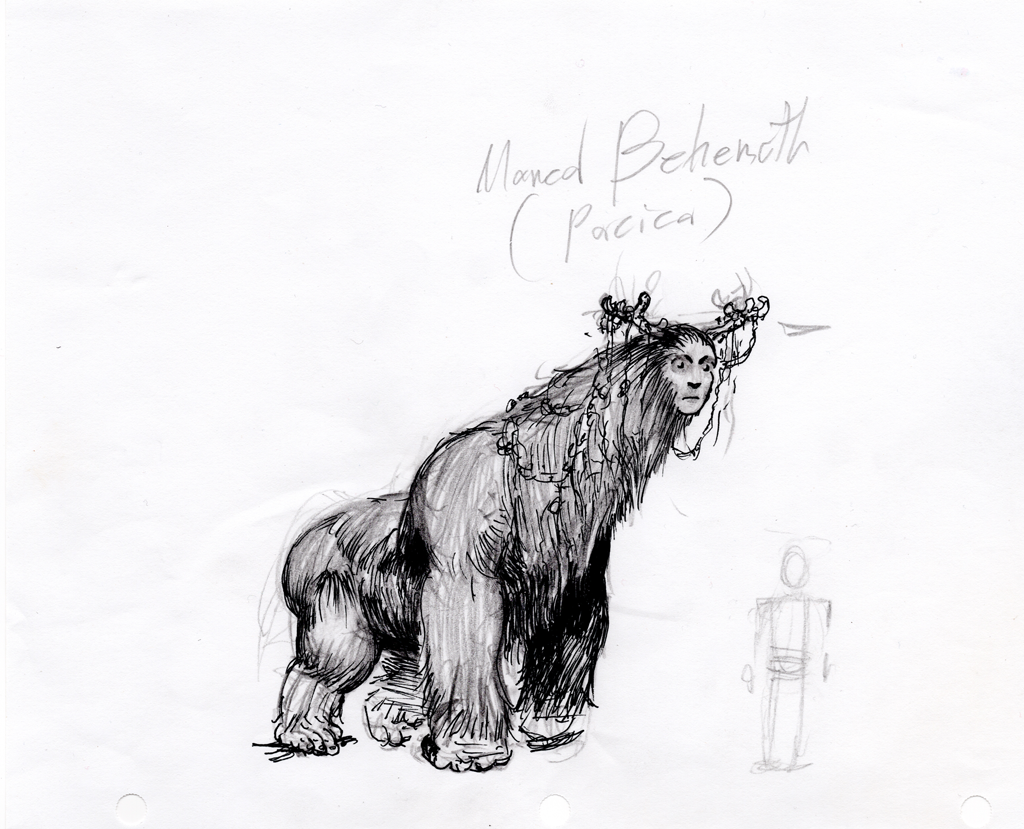 Maned Behemoth
(Porcica)